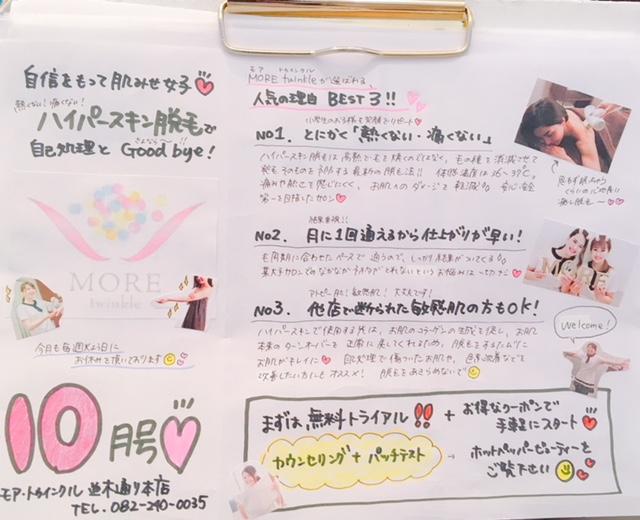 自信をもって肌みせ女子
熱くない!痛くない!
ハイパースキン脱毛で
さよなら〜!!
自己処理と Good bye!
MORE
twinkle
今月も毎週火曜日に
お休みを頂いております
10月号
モア・トゥインクル 並木通り本店
TEL. 082-240-0035
モア トゥインクル
MORE twinkleが選ばれる、
人気の理由 BEST3!!
小学生のお子様も笑顔でリピート
No1. とにかく「熱くない・痛くない」
ハイパースキン脱毛は高熱で毛を焼くのではなく、毛の種を消滅させて
発毛そのものを予防する最新の脱毛法!! 体感温度は36〜37℃。
痛みや熱さを感じにくく、お肌へのダメージを軽減
を目指したサロン
思わず眠っちゃう
くらいの心地良さ
癒し脱毛〜
結果重視!!
No2. 月に1回通えるから仕上がりが早い!
毛周期に合わせたペースで通うので、しっかり結果がついてくる
某大手サロンでのなかなか予約がとれないというお悩みは
アトピー肌!敏感肌!大丈夫です!
No3. 他店で断られた敏感肌の方もOK!
ハイパースキンで使用する光は、お肌のコラーゲンの生成を促し、お肌
本来のターンオーバーを正常に戻してくれるため、脱毛をするたびに
お肌がキレイに 自己処理で傷ついたお肌や、などを
改善したい方にもオススメ! 脱毛をあきらめないで
Welcome!
まずは無料トライアル!! + お得なクーポンで
手軽にスタート
カウンセリング+パッチテスト
ホットペッパービューティーを
ご覧下さい